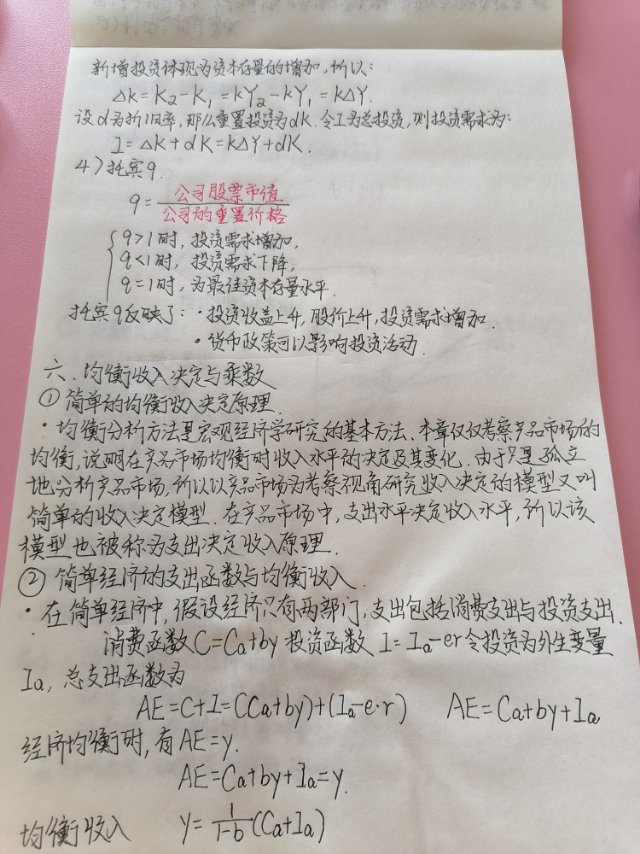 新增投资体现为资本存量的增加,所以:
Δk=K₂-K₁=kY₂-kY₁=kΔY.
设d为折旧率,那么重置投资为dk.令I为总投资,则投资需求为:
I=Δk+dk=kΔY+dK.
4)托宾q.
q=公司股票市值/公司的重置价格
q>1时,投资需求增加,
q<1时,投资需求下降,
q=1时,为最佳资本存量水平.
托宾q反映了:·投资收益上升,股价上升,投资需求增加.
·货币政策可以影响投资活动.
六、均衡收入决定与乘数
①简单的均衡收入决定原理.
·均衡分析方法是宏观经济学研究的基本方法、本章仅仅考察产品市场的
均衡,说明在产品市场均衡时收入水平的决定及其变化.由于只是孤立
地分析产品市场,所以以产品市场为考察视角研究收入决定的模型又叫
简单的收入决定模型.在产品市场中,支出水平决定收入水平,所以该
模型也被称为支出决定收入原理.
②简单经济的支出函数与均衡收入.
·在简单经济中,假设经济只有两部门,支出包括消费支出与投资支出.
消费函数C=Ca+by 投资函数 I=Ia-er令投资为外生变量
Ia,总支出函数为
AE=C+I=(Ca+by)+(Ia-e·r) AE=Ca+by+Ia
经济均衡时,有AE=y.
AE=Ca+by+Ia=y.
均衡收入 y=1/1-b(Ca+Ia)